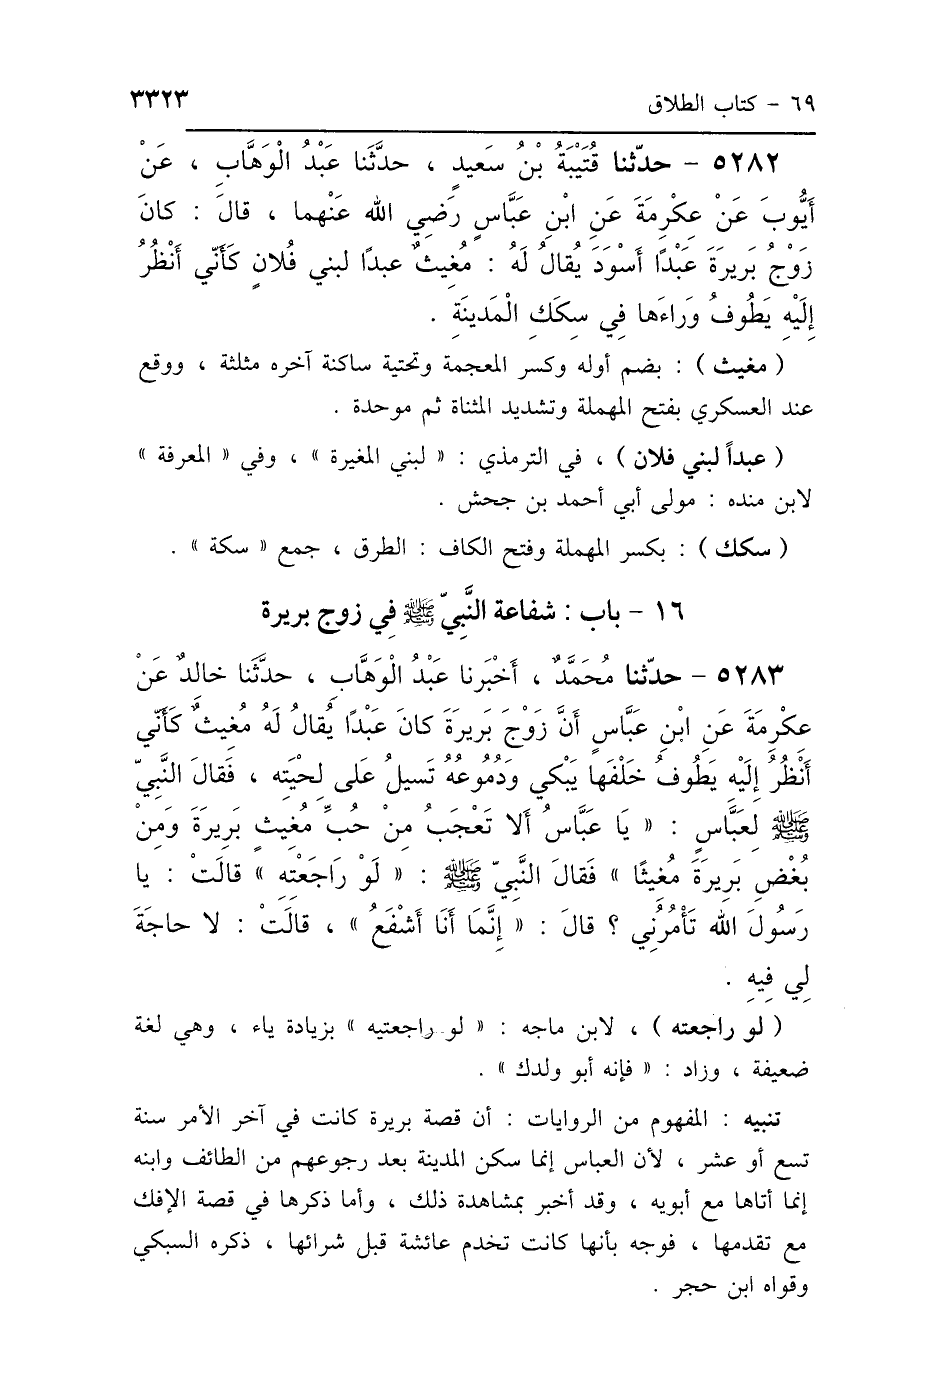 ٦٩ - كتاب الطلاق ٣٣٢٣
٥٢٨٢ - حدّثنا قُتَيْبَةُ بْنُ سَعيدٍ ، حدَّثَنا عَبْدُ الْوَهَّابِ ، عَنْ
أَيُّوبَ عَنْ عِكْرِمَةَ عَنِ ابْنِ عَبَّاسٍ رَضِي الله عَنْهما ، قالَ : كانَ
زَوْجُ بَرِيرَةَ عَبْدًا أَسْوَدَ يُقالُ لَهُ : مُغِيثٌ عبدًا لبني فُلانٍ كَأَنّي أَنْظُرُ
إِلَيْهِ يَطُوفُ وَراءَها فِي سِكَكِ الْمَدِينَةِ .
( مغيث ) : بضم أوله وكسر المعجمة وتحتية ساكنة آخره مثلثة ، ووقع
عند العسكري بفتح المهملة وتشديد المثناة ثم موحدة .
( عبداً لبني فلان ) ، في الترمذي : « لبني المغيرة » ، وفي « المعرفة »
لابن منده : مولى أبي أحمد بن جحش .
( سكك ) : بكسر المهملة وفتح الكاف : الطرق ، جمع « سكة » .
١٦ - باب : شفاعة النَّبِيّ ﷺ فِي زوج بريرة
٥٢٨٣ - حدّثنا مُحَمَّدٌ ، أَخْبَرنا عَبْدُ الْوَهَّابِ ، حدَّثَنا خالِدٌ عَنْ
عِكْرِمَةَ عَنِ ابْنِ عَبَّاسٍ أَنَّ زَوْجَ بَرِيرَةَ كانَ عَبْدًا يُقالُ لَهُ مُغيثٌ كَأَنّي
أَنْظُرُ إِلَيْهِ يَطُوفُ خَلْفَها يَبْكي وَدُمُوعُهُ تَسيلُ عَلى لِحْيَتِهِ ، فَقالَ النَّبِيّ
ﷺ لعَبَّاسٍ : « يَا عَبَّاسُ أَلا تَعْجَبُ مِنْ حُبِّ مُغِيثٍ بَرِيرَةَ وَمِنْ
بُغْضِ بَرِيرَةَ مُغيثًا » فَقالَ النَّبِيّ ﷺ : « لَوْ رَاجَعْتِهِ » قالَتْ : يا
رَسُولَ الله تَأْمُرُنِي ؟ قالَ : « إِنَّمَا أَنَا أَشْفَعُ » ، قالَتْ : لا حاجَةَ
لِي فِيهِ .
( لو راجعته ) ، لابن ماجه : « لو راجعتيه » بزيادة ياء ، وهي لغة
ضعيفة ، وزاد : « فإنه أبو ولدك » .
تنبيه : المفهوم من الروايات : أن قصة بريرة كانت في آخر الأمر سنة
تسع أو عشر ، لأن العباس إنما سكن المدينة بعد رجوعهم من الطائف وابنه
إنما أتاها مع أبويه ، وقد أخبر بمشاهدة ذلك ، وأما ذكرها في قصة الإفك
مع تقدمها ، فوجه بأنها كانت تخدم عائشة قبل شرائها ، ذكره السبكي
وقواه ابن حجر .